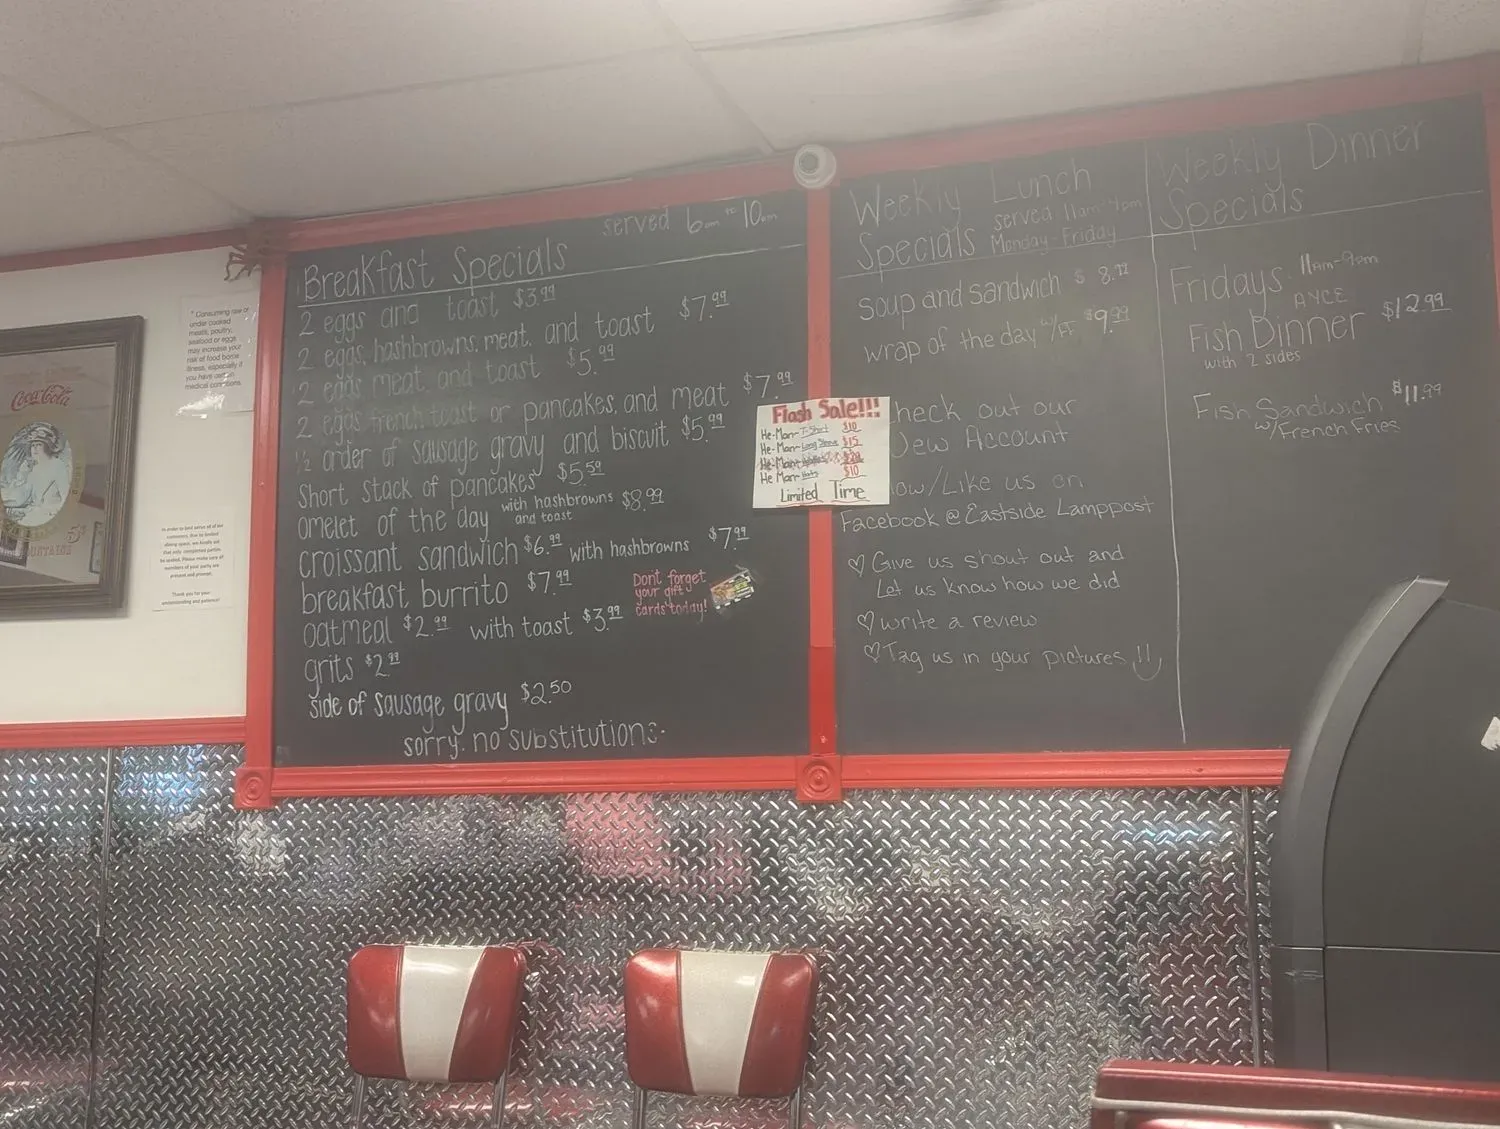 served 6am to 10am
Breakfast Specials
2 eggs and toast $3.99
2 eggs, hashbrowns, meat, and toast $7.99
2 eggs meat and toast $5.99
2 eggs french toast or pancakes, and meat $7.99
1/2 order of sausage gravy and biscuit $5.99
Short stack of pancakes $5.59
omelet of the day with hashbrowns and toast $8.99
croissant sandwich $6.99 with hashbrowns $7.99
breakfast burrito $7.99
oatmeal $2.99 with toast $3.99
grits $2.99
side of sausage gravy $2.50
sorry no substitutions.
Don't forget
your gift
cards today!
Flash Sale!!!
He-Man T-Shirt $10
He-Man Long Sleeve $15
He-Man $20
He Man $10
Limited Time
Weekly Lunch
Specials
served 11am-4pm
Monday-Friday
soup and sandwich $8.99
wrap of the day w/FF $9.99
heck out our
New Account
ow/Like us on
Facebook @ Eastside Lamppost
♡ Give us shout out and
Let us know how we did
♡ write a review
♡ Tag us in your pictures !!
Weekly Dinner
Specials
Fridays 11am-9pm
AYCE
Fish Dinner $12.99
with 2 sides
Fish Sandwich $11.99
w/French Fries
* Consuming raw or
under cooked
meats, poultry,
seafood or eggs
may increase your
risk of food borne
illness, especially if
you have certain
medical conditions.
In order to best serve all of our
customers, due to limited
dining space, we kindly ask
that only completed parties
be seated. Please make sure all
members of your party are
present and prompt.
Thank you for your
understanding and patience!
Coca-Cola
5¢